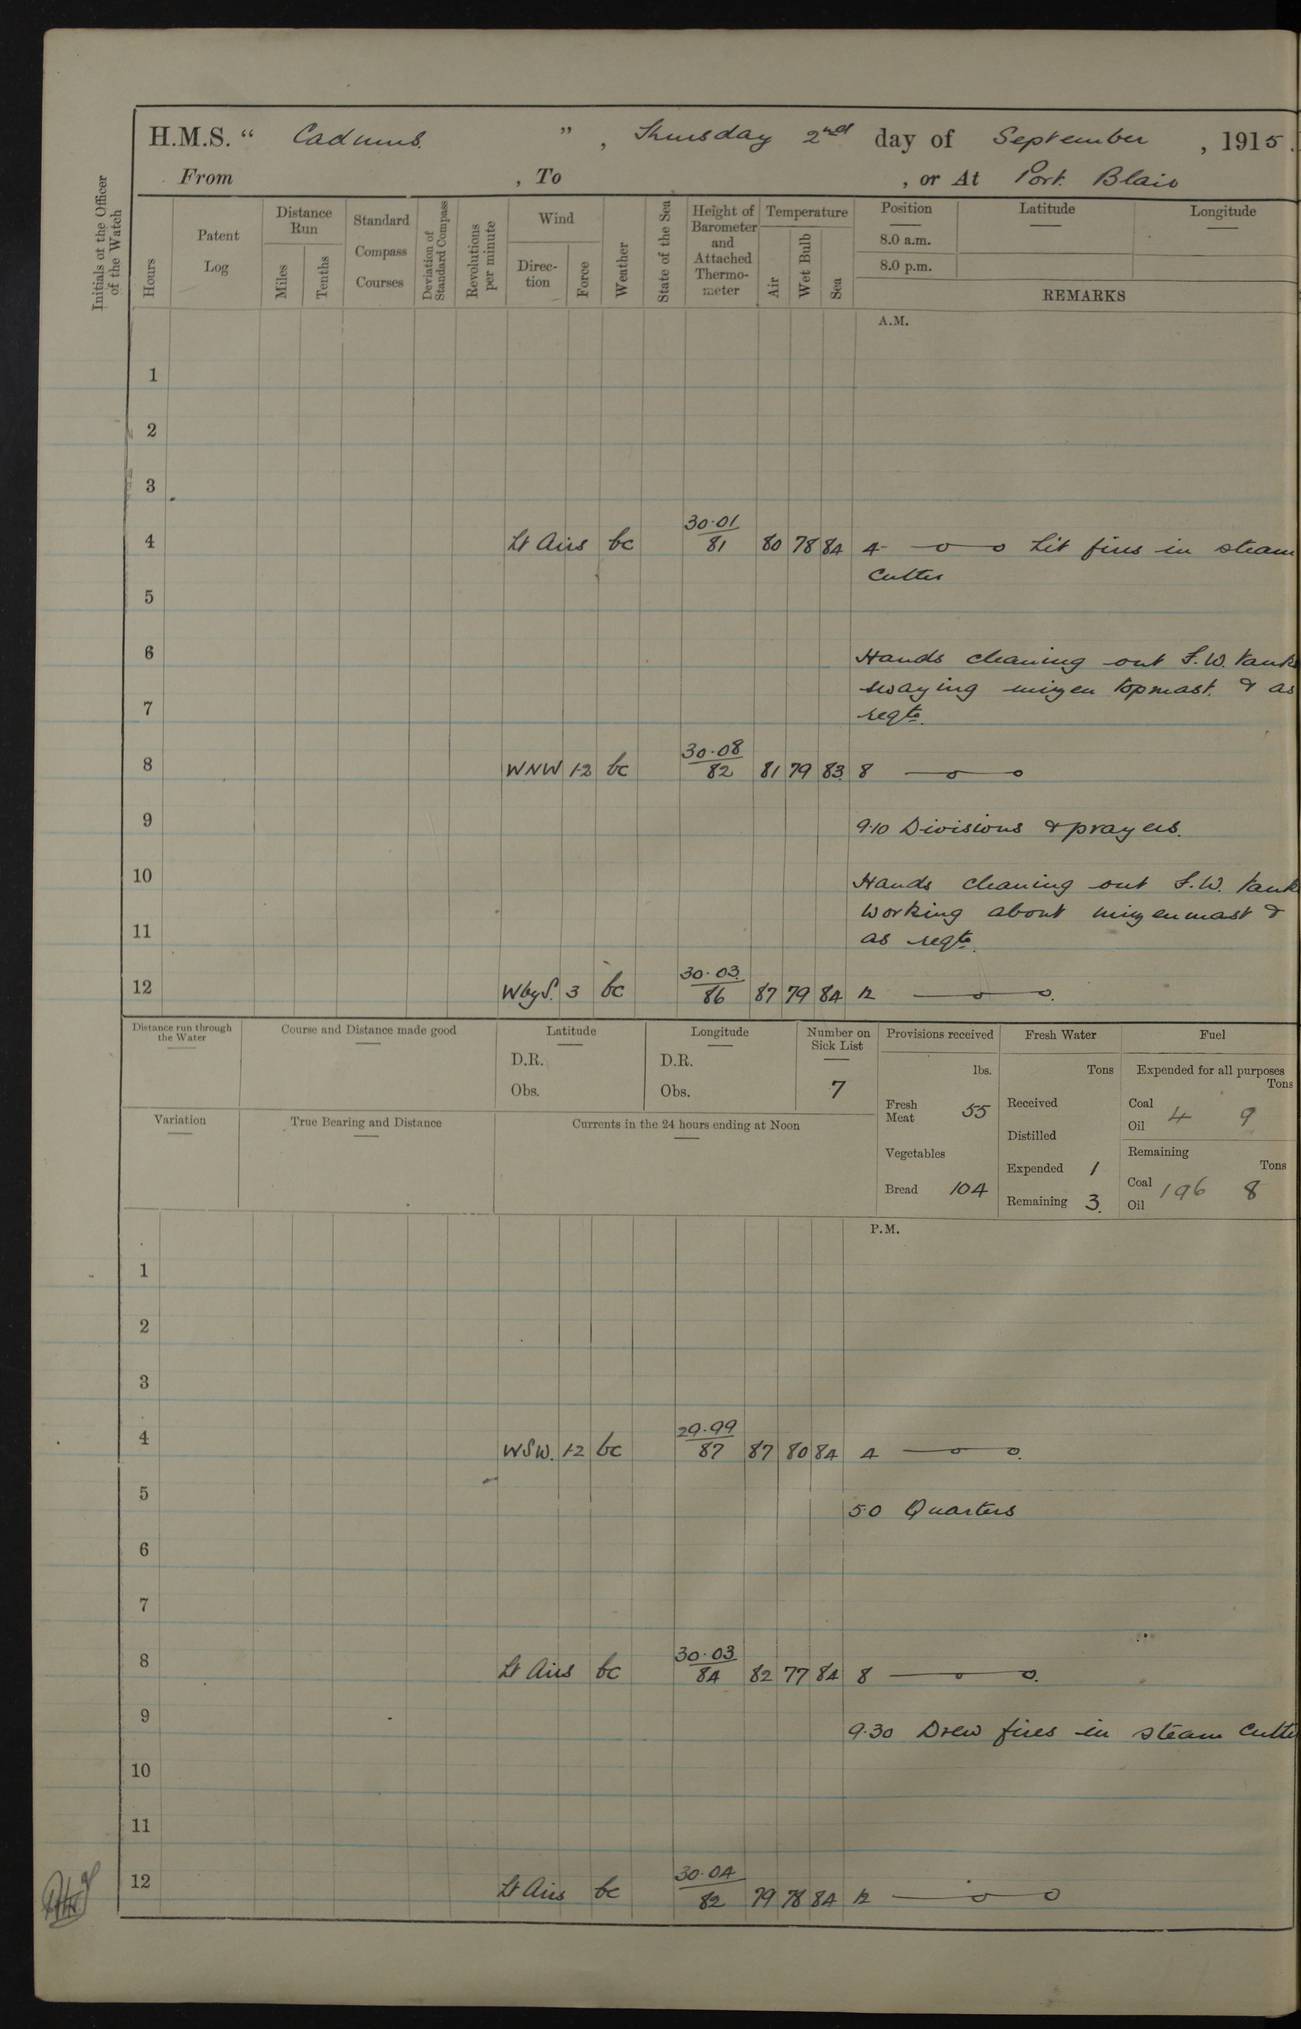 H.M.S. “ Cadmus. ”, Thursday 2nd day of September, 1915.
From , To , or At Port Blair
Initials of the Officer of the Watch
Hours
Patent Log
Distance Run
Miles
Tenths
Standard Compass Courses
Deviation of Standard Compass
Revolutions per minute
Wind
Direction
Force
Weather
State of the Sea
Height of Barometer and Attached Thermometer
Temperature
Air
Wet Bulb
Sea
Position Latitude Longitude
8.0 a.m.
8.0 p.m.
REMARKS
A.M.
1
2
3
4 Lt Airs bc 30.01/81 80 78 84 4 Lit fires in steam
cutter
5
6 Hands cleaning out F.W. tanks
swaying mizen topmast. & as
7 reqte.
8 WNW 1-2 bc 30.08/82 81 79 83 8
9 9.10 Divisions & prayers.
10 Hands cleaning out F.W. tank
working about mizenmast &
11 as reqte.
12 WbyS. 3 bc 30.03/86 87 79 84 12
Distance run through the Water
Course and Distance made good
Latitude
D.R.
Obs.
Longitude
D.R.
Obs.
Number on Sick List
7
Provisions received
lbs.
Fresh Meat 55
Vegetables
Bread 104
Fresh Water
Tons
Received
Distilled
Expended 1
Remaining 3.
Fuel
Expended for all purposes
Tons
Coal 4 9
Oil
Remaining
Tons
Coal 196 8
Oil
Variation
True Bearing and Distance
Currents in the 24 hours ending at Noon
P.M.
1
2
3
4 WSW. 1-2 bc 29.99/87 87 80 84 4
5 5.0 Quarters
6
7
8 Lt Airs bc 30.03/84 82 77 84 8
9 9.30 Drew fires in steam cutte
10
11
12 Lt Airs bc 30.04/82 79 78 84 12